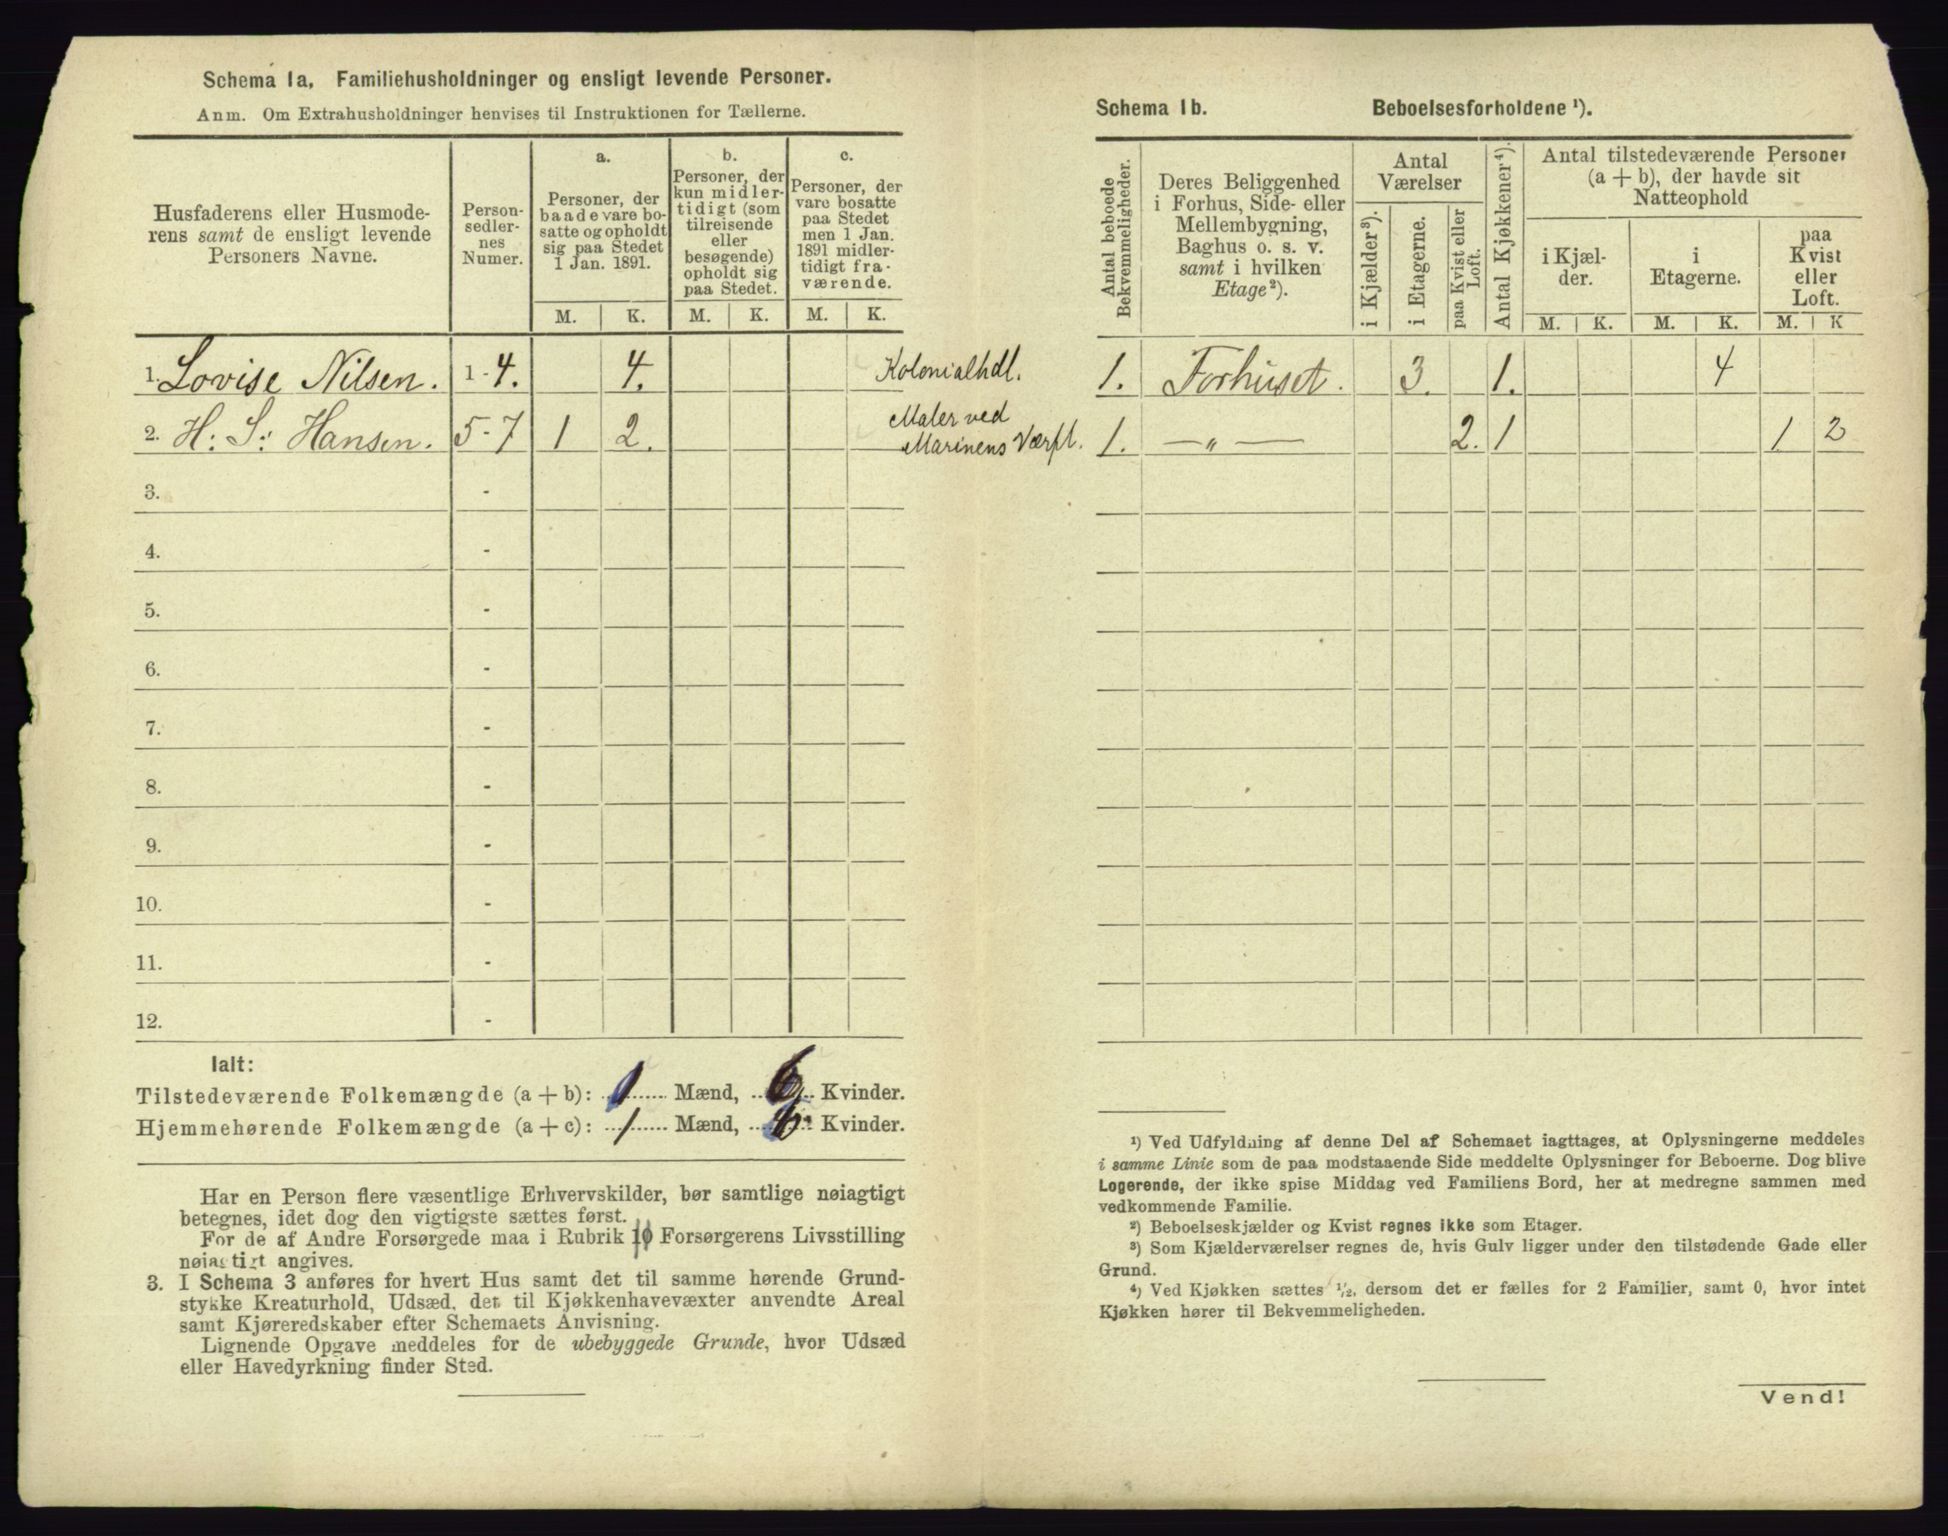 Schema 1a, Familiehusholdninger og ensligt levende Personer.
Anm. Om Extrahusholdninger henvises til Instruktionen for Tællerne.
Husfaderens eller Husmode-
rens samt de ensligt levende
Personers Navne.
Person-
sedler-
nes
Numer.
a.
Personer, der
baade vare bo-
satte og opholdt
sig paa Stedet
1 Jan. 1891.
b.
Personer, der
kun midler-
tidigt (som
tilreisende
eller
besøgende)
opholdt sig
paa Stedet.
c.
Personer, der
vare bosatte
paa Stedet
men 1 Jan.
1891 midler-
tidigt fra-
værende.
M. K. M. K. M. K.
1. Lovise Nilsen. 1-4. 4. Kolonialhdl.
2. H: S: Hansen. 5-7 1 2. Maler ved
Marinens Værft.
3. -
4. -
5. -
6. -
7. -
8. -
9. -
10. -
11. -
12. -
Ialt:
Tilstedeværende Folkemængde (a + b): 1 Mænd, 6 Kvinder.
Hjemmehørende Folkemængde (a + c): 1 Mænd, 6 Kvinder.
Har en Person flere væsentlige Erhvervskilder, bør samtlige nøiagtigt
betegnes, idet dog den vigtigste sættes først.
For de af Andre Forsørgede maa i Rubrik 10 Forsørgerens Livsstilling
nøiagtigt angives.
3. I Schema 3 anføres for hvert Hus samt det til samme hørende Grund-
stykke Kreaturhold, Udsæd, det til Kjøkkenhavevæxter anvendte Areal
samt Kjøreredskaber efter Schemaets Anvisning.
Lignende Opgave meddeles for de ubebyggede Grunde, hvor Udsæd
eller Havedyrkning finder Sted.
Schema 1b. Beboelsesforholdene ¹).
Antal beboede
Bekvemmeligheder.
Deres Beliggenhed
i Forhus, Side- eller
Mellembygning,
Baghus o. s. v.
samt i hvilken
Etage²).
Antal
Værelser
i Kjælder³).
i Etagerne.
paa Kvist eller
Loft.
Antal Kjøkkener⁴).
Antal tilstedeværende Personer
(a + b), der havde sit
Natteophold
i Kjæl-
der.
i
Etagerne.
paa
Kvist
eller
Loft.
M. K. M. K. M. K
1. Forhuset. 3. 1. 4
1. — „ — 2. 1 1 2
¹) Ved Udfyldning af denne Del af Schemaet iagttages, at Oplysningerne meddeles
i samme Linie som de paa modstaaende Side meddelte Oplysninger for Beboerne. Dog blive
Logerende, der ikke spise Middag ved Familiens Bord, her at medregne sammen med
vedkommende Familie.
²) Beboelseskjælder og Kvist regnes ikke som Etager.
³) Som Kjælderværelser regnes de, hvis Gulv ligger under den tilstødende Gade eller
Grund.
⁴) Ved Kjøkken sættes ½, dersom det er fælles for 2 Familier, samt 0, hvor intet
Kjøkken hører til Bekvemmeligheden.
Vend!